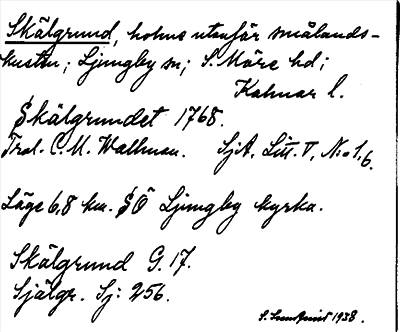 Skälgrund, holme utanför smålands-
kusten; Ljungby sn; S. Möre hd;
Kalmar l.
Skälgrundet 1768.
Trol. C. M. Wallman. SjA, Litt. V, No 1,6.
Läge 6,8 km. SÖ Ljungby kyrka.
Skälgrund G. 17.
Själgr. Sj: 256.
S. Lundquist 1938.